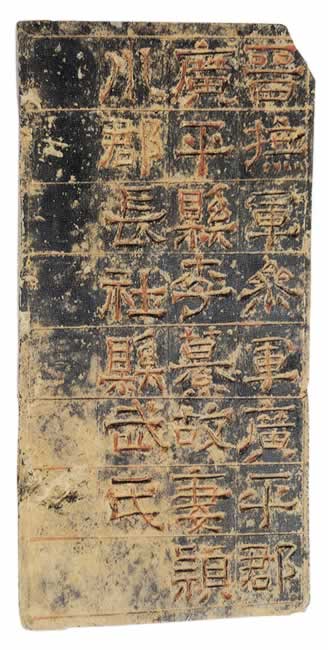 晉撫軍叅軍廣平郡
廣平縣李纂故妻潁
川郡長社縣武氏